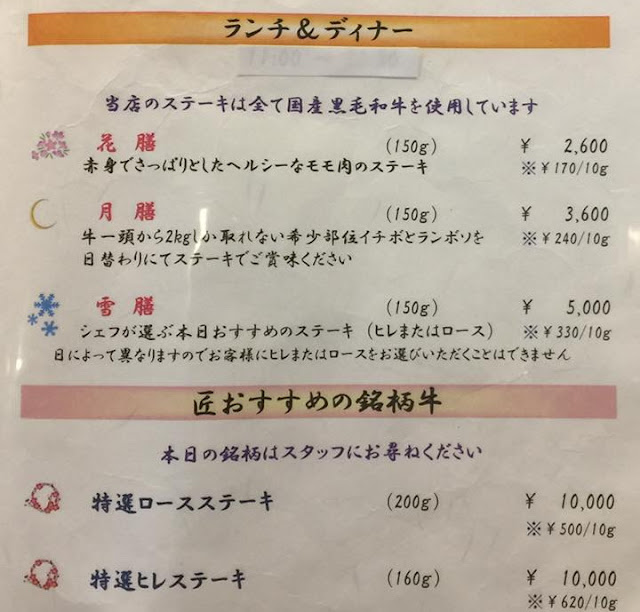 ランチ&ディナー
当店のステーキは全て国産黒毛和牛を使用しています
花膳 (150g) ¥ 2,600
赤身でさっぱりとしたヘルシーなモモ肉のステーキ ※¥170/10g
月膳 (150g) ¥ 3,600
牛一頭から2kgしか取れない希少部位イチボとランボソを ※¥240/10g
日替わりにてステーキでご賞味ください
雪膳 (150g) ¥ 5,000
シェフが選ぶ本日おすすめのステーキ (ヒレまたはロース) ※¥330/10g
日によって異なりますのでお客様にヒレまたはロースをお選びいただくことはできません
匠おすすめの銘柄牛
本日の銘柄はスタッフにお尋ねください
特選ロースステーキ (200g) ¥ 10,000
※¥500/10g
特選ヒレステーキ (160g) ¥ 10,000
※¥620/10g